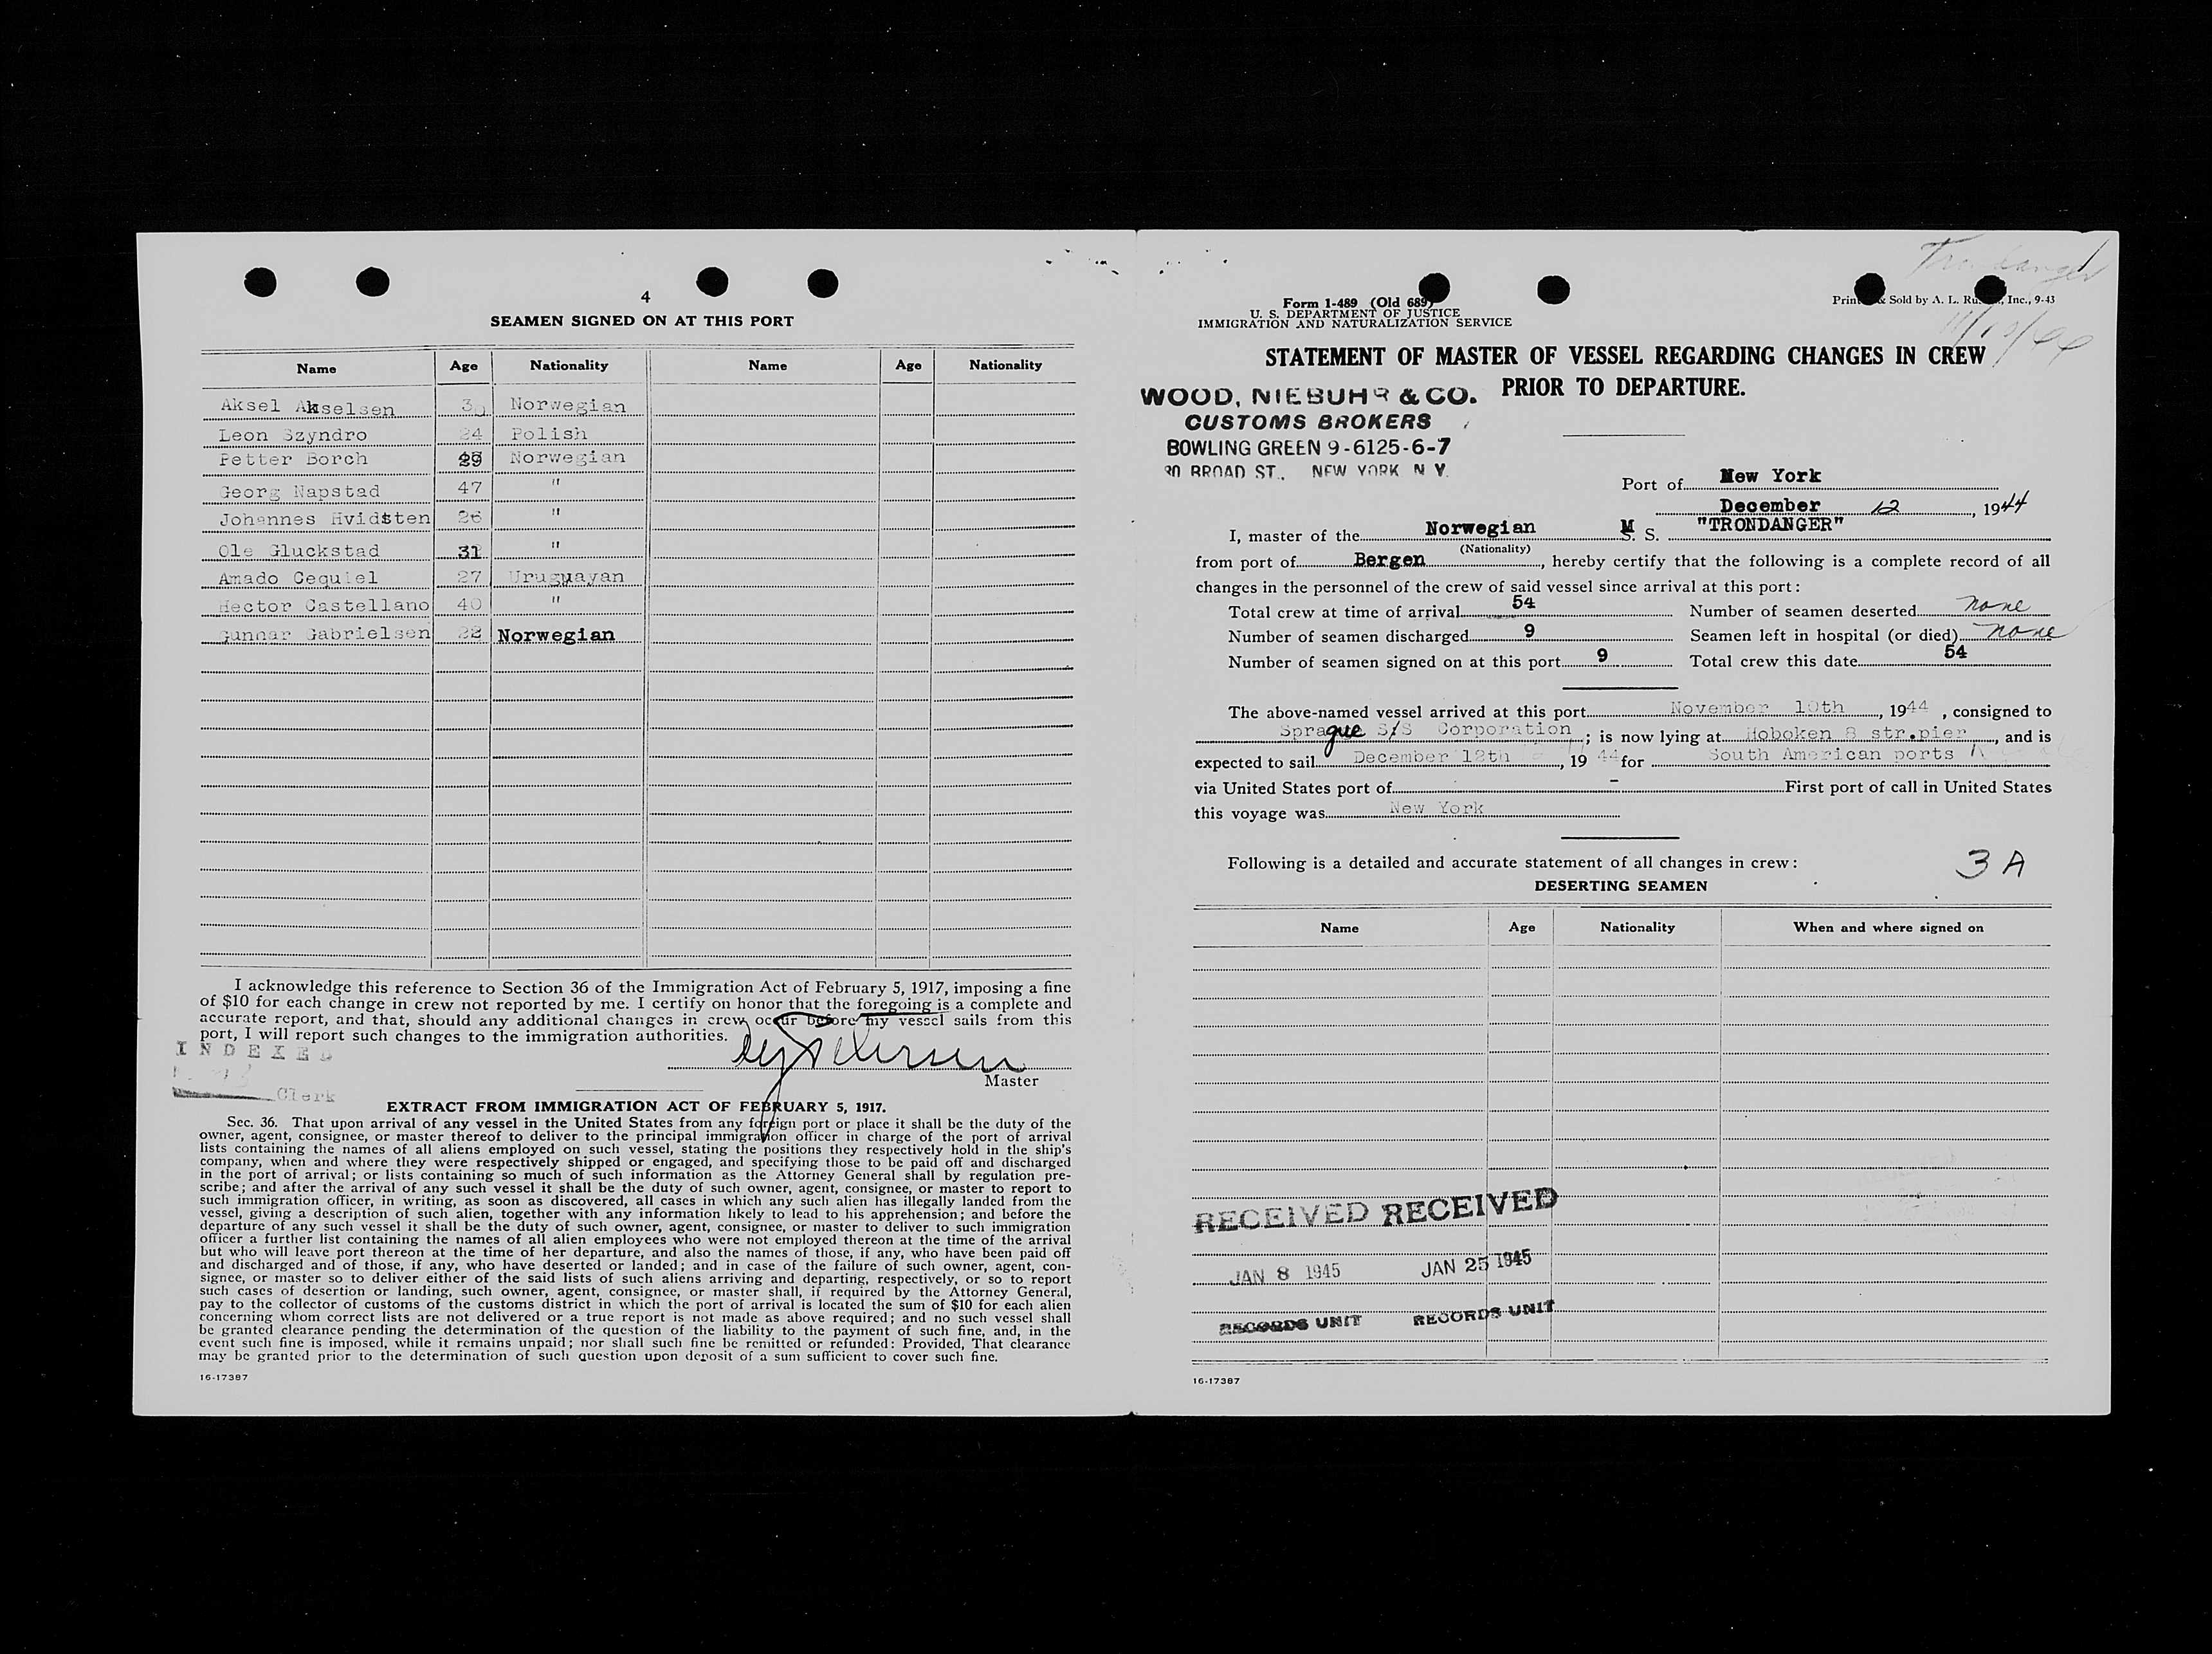 4
SEAMEN SIGNED ON AT THIS PORT
Name Age Nationality Name Age Nationality
Aksel Akselsen Norwegian
Leon Szyndro 24 Polish
Petter Borch 29 Norwegian
Georg Napstad 47 "
Johannes Hvidsten 26 "
Ole Gluckstad 31 "
Amado Cequiel 27 Uruguayan
Hector Castellano 40 "
Gunnar Gabrielsen 22 Norwegian
I acknowledge this reference to Section 36 of the Immigration Act of February 5, 1917, imposing a fine
of $10 for each change in crew not reported by me. I certify on honor that the foregoing is a complete and
accurate report, and that, should any additional changes in crew occur before my vessel sails from this
port, I will report such changes to the immigration authorities.
INDEXED
Master
Clerk
EXTRACT FROM IMMIGRATION ACT OF FEBRUARY 5, 1917.
Sec. 36. That upon arrival of any vessel in the United States from any foreign port or place it shall be the duty of the
owner, agent, consignee, or master thereof to deliver to the principal immigration officer in charge of the port of arrival
lists containing the names of all aliens employed on such vessel, stating the positions they respectively hold in the ship's
company, when and where they were respectively shipped or engaged, and specifying those to be paid off and discharged
in the port of arrival; or lists containing so much of such information as the Attorney General shall by regulation pre-
scribe; and after the arrival of any such vessel it shall be the duty of such owner, agent, consignee, or master to report to
such immigration officer, in writing, as soon as discovered, all cases in which any such alien has illegally landed from the
vessel, giving a description of such alien, together with any information likely to lead to his apprehension; and before the
departure of any such vessel it shall be the duty of such owner, agent, consignee, or master to deliver to such immigration
officer a further list containing the names of all alien employees who were not employed thereon at the time of the arrival
but who will leave port thereon at the time of her departure, and also the names of those, if any, who have been paid off
and discharged and of those, if any, who have deserted or landed; and in case of the failure of such owner, agent, con-
signee, or master so to deliver either of the said lists of such aliens arriving and departing, respectively, or so to report
such cases of desertion or landing, such owner, agent, consignee, or master shall, if required by the Attorney General,
pay to the collector of customs of the customs district in which the port of arrival is located the sum of $10 for each alien
concerning whom correct lists are not delivered or a true report is not made as above required; and no such vessel shall
be granted clearance pending the determination of the question of the liability to the payment of such fine, and, in the
event such fine is imposed, while it remains unpaid; nor shall such fine be remitted or refunded: Provided, That clearance
may be granted prior to the determination of such question upon deposit of a sum sufficient to cover such fine.
16-17387
Trondanger
Form 1-489 (Old 689)
U. S. DEPARTMENT OF JUSTICE
IMMIGRATION AND NATURALIZATION SERVICE
Sold by A. L. Inc., 9-43
STATEMENT OF MASTER OF VESSEL REGARDING CHANGES IN CREW
PRIOR TO DEPARTURE.
WOOD, NIEBUHR & CO.
CUSTOMS BROKERS
BOWLING GREEN 9-6125-6-7
80 BROAD ST., NEW YORK N Y.
Port of New York
December 12, 1944
I, master of the Norwegian M S. "TRONDANGER"
(Nationality)
from port of Bergen, hereby certify that the following is a complete record of all
changes in the personnel of the crew of said vessel since arrival at this port:
Total crew at time of arrival 54 Number of seamen deserted none
Number of seamen discharged 9 Seamen left in hospital (or died) none
Number of seamen signed on at this port 9 Total crew this date 54
The above-named vessel arrived at this port November 10th, 1944, consigned to
Sprague S/S Corporation; is now lying at Hoboken 8 str.pier, and is
expected to sail December 12th, 1944 for South American ports
via United States port of - First port of call in United States
this voyage was New York
Following is a detailed and accurate statement of all changes in crew:
3 A
DESERTING SEAMEN
Name Age Nationality When and where signed on
RECEIVED RECEIVED
JAN 8 1945 JAN 25 1945
RECORDS UNIT RECORDS UNIT
16-17387